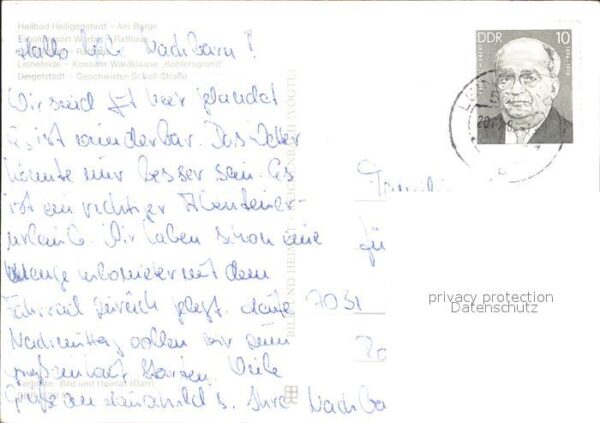 Heilbad Heiligenstadt – Am Berge
Rathaus
Leinefelde – Konsum Waldklause „Kohlersgrund“
Dingelstädt – Geschwister-Scholl-Straße
Hallo liebe Nachbarn!
Wir sind gut hier gelandet
Es ist wunderbar. Das Wetter
könnte nur besser sein. Es
ist ein richtiger Abenteuer-
urlaub. Wir haben schon eine
Menge Kilometer mit dem
Fahrrad zurück gelegt. Heute
Nachmittag wollen wir zum
starten. Viele
Grüße an Ihre Nachba
BILD UND HEIMAT REICHENBACH (VOGTL)
Farbfoto: Bild und Heimat (Darr)
DDR 10
Familie
für
7031
privacy protection
Datenschutz